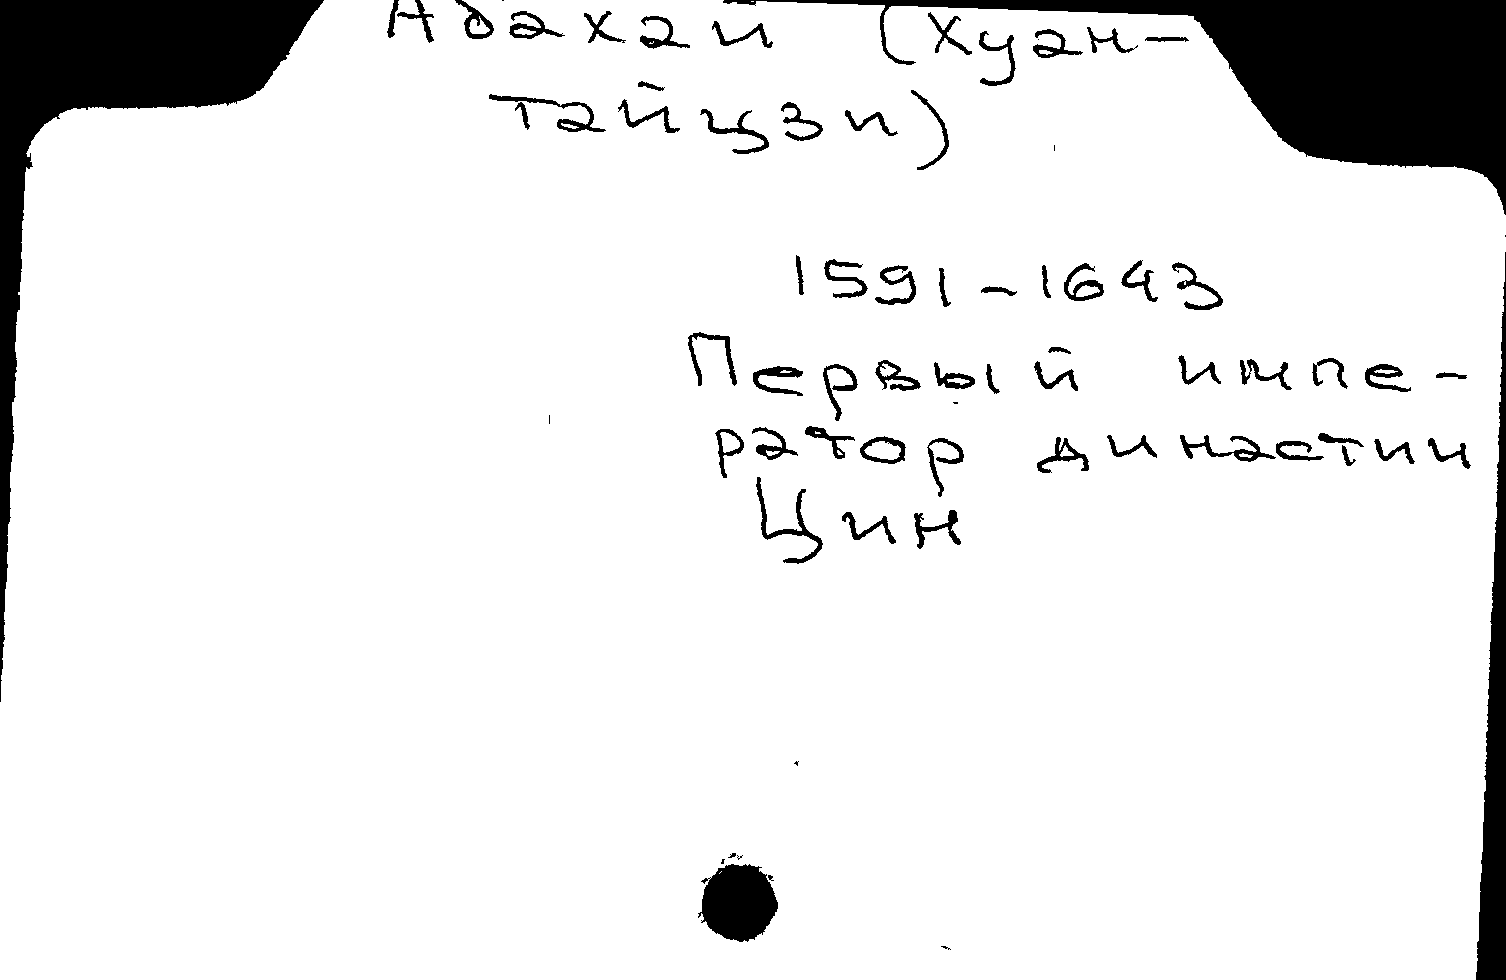 Абахай (Хуан-
тайцзи)
1591-1643
Первый импе-
ратор династии
Цин